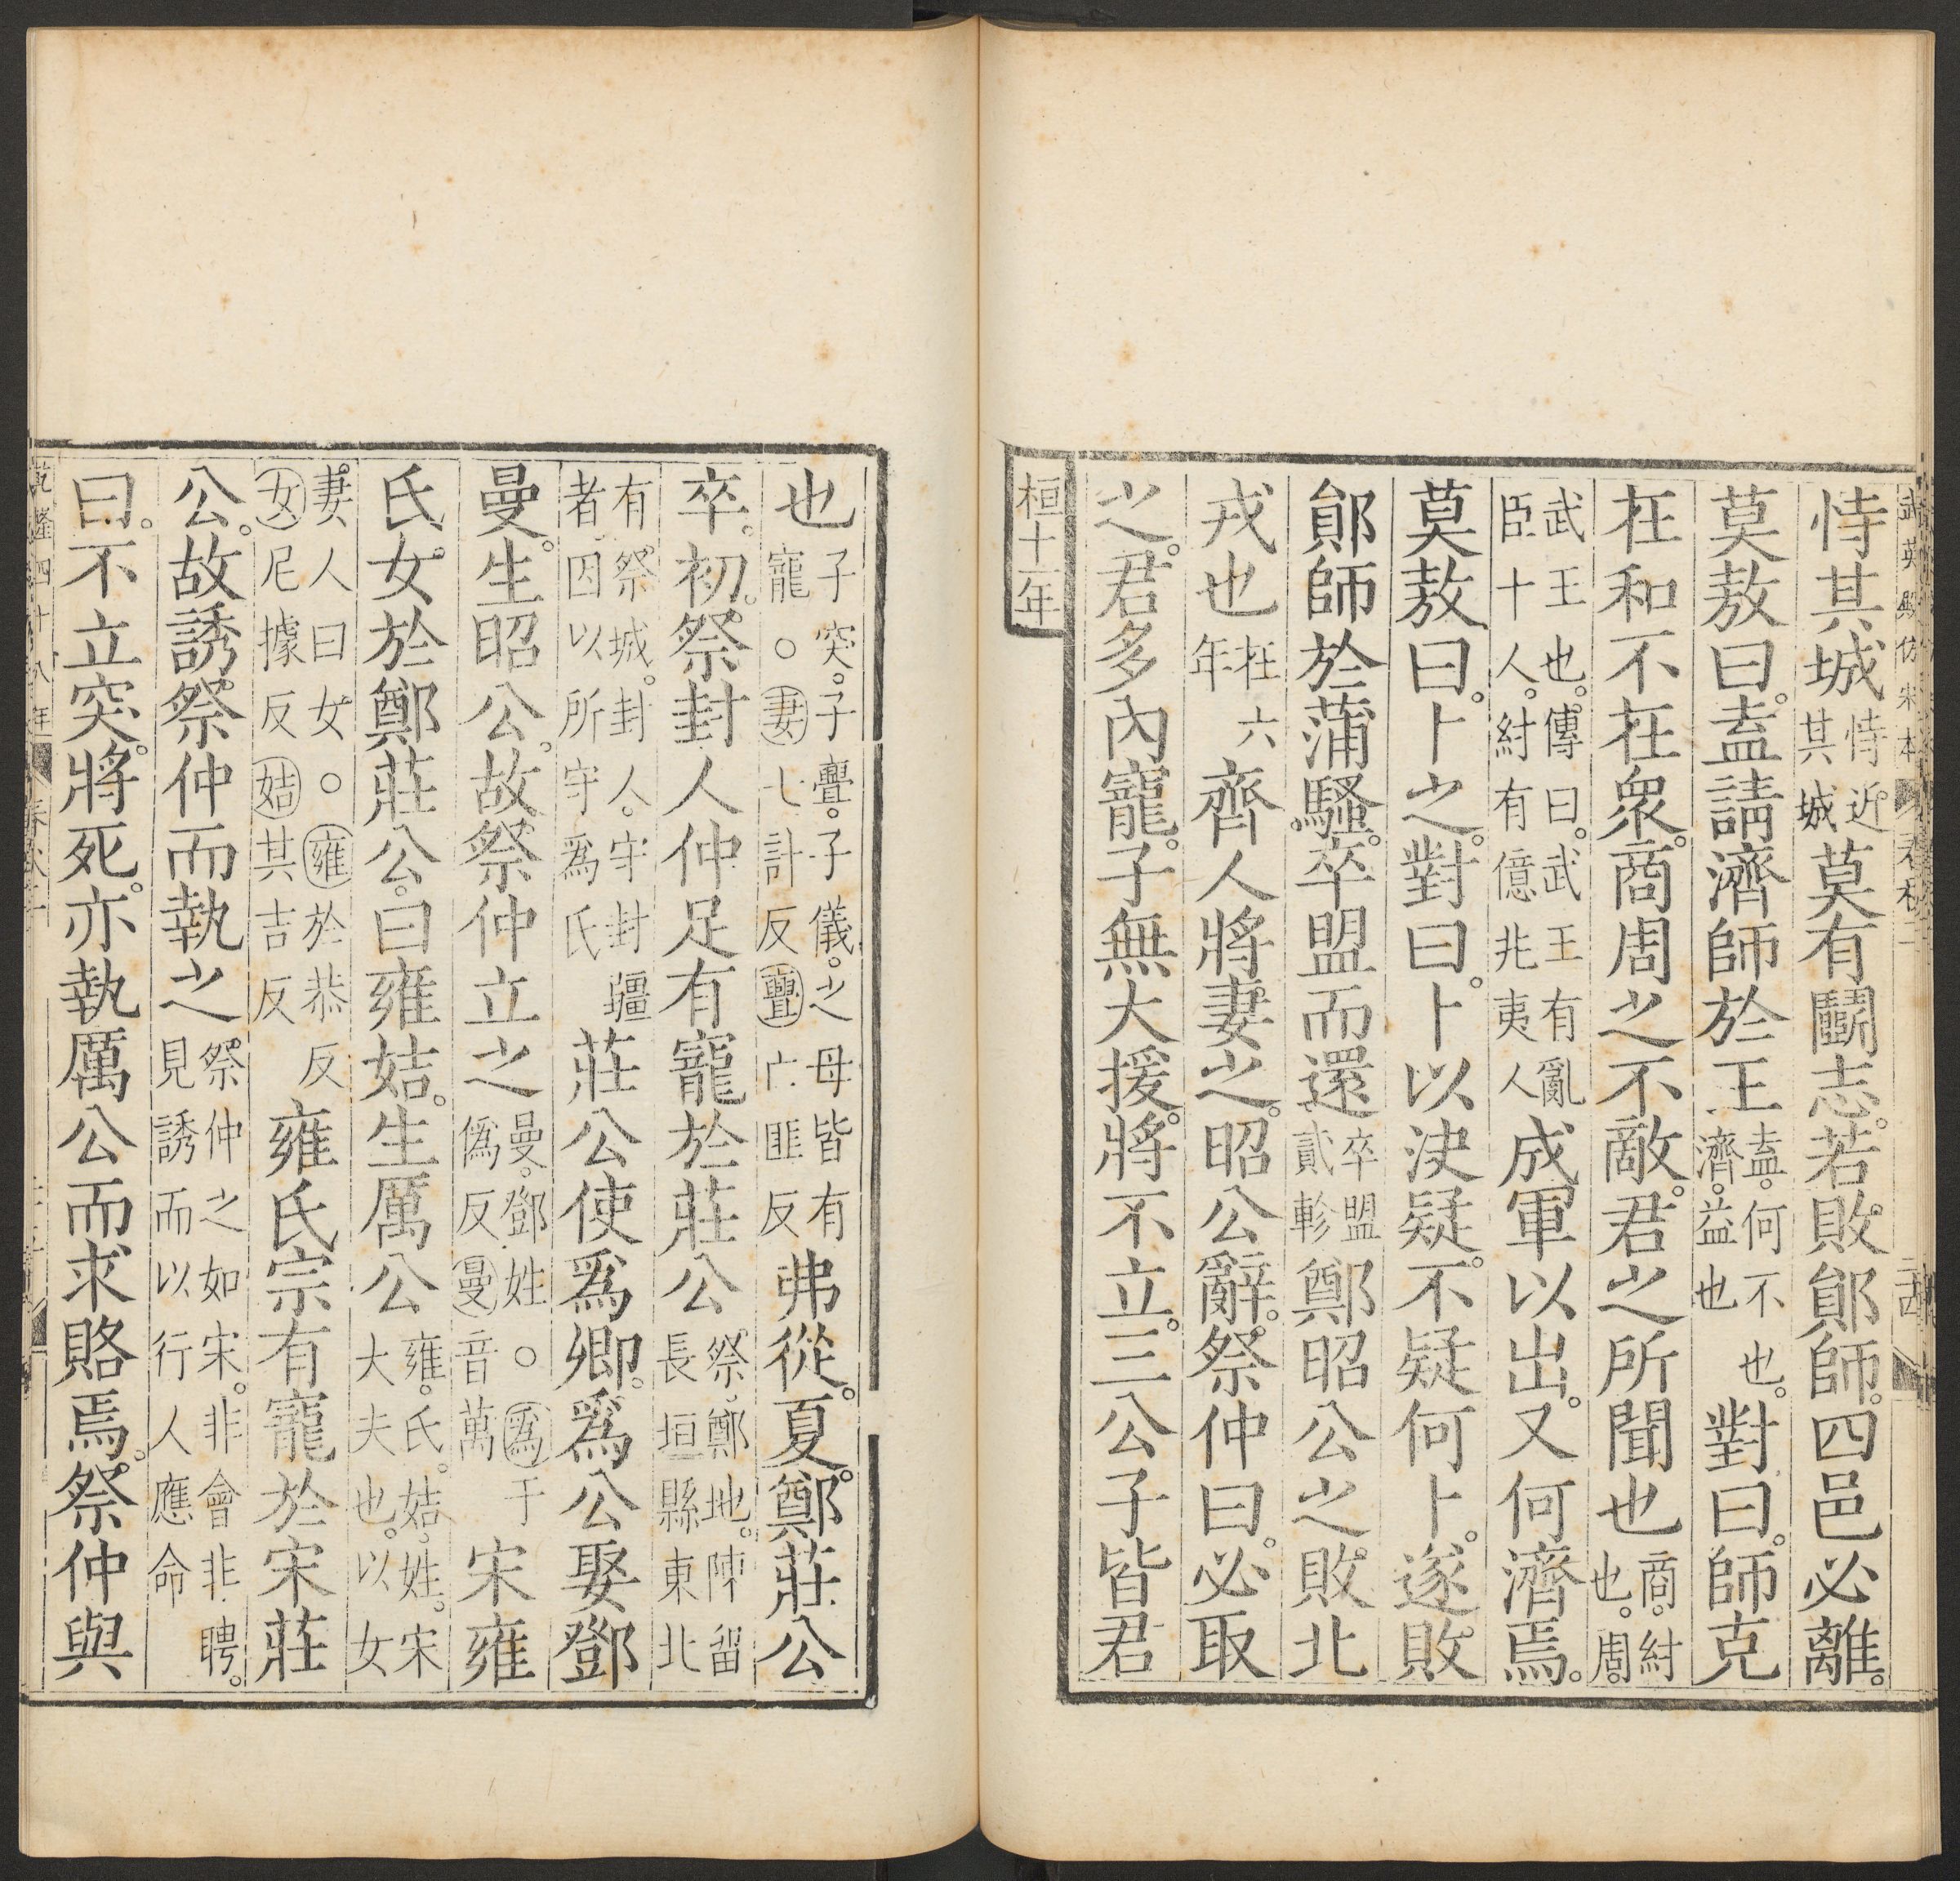 武英殿仿宋本
恃其城恃近。其城莫有鬭志。若敗鄖師。四邑必離。
莫敖曰。盍請濟師於王盍。何不也。濟。益也對曰。師克
在和不在衆。商周之不敵。君之所聞也商。紂也。周。
武王也。傳曰。武王有亂臣十人。紂有億兆夷人成軍以出。又何濟焉。
莫敖曰。卜之。對曰。卜以決疑。不疑何卜。遂敗
鄖師於蒲騷。卒盟而還卒盟貳軫鄭昭公之敗北
戎也在六年齊人將妻之。昭公辭。祭仲曰。必取
之。君多內寵。子無大援。將不立。三公子皆君
桓十一年
也子突。子亹。子儀。之母皆有寵○妻七計反亹亡匪反弗從。夏。鄭莊公
卒。初。祭封人仲足有寵於莊公祭。鄭地。陳留長垣縣東北
有祭城。封人。守封疆者。因以所守爲氏莊公使爲卿。爲公娶鄧
曼。生昭公。故祭仲立之曼。鄧姓○爲于僞反曼音萬宋雍
氏女於鄭莊公。曰雍姞。生厲公雍。氏。姞。姓。宋大夫也。以女
妻人曰女○雍於恭反女尼據反姞其吉反雍氏宗有寵於宋莊
公。故誘祭仲而執之祭仲之如宋。非會非聘。見誘而以行人應命
曰。不立突。將死。亦執厲公而求賂焉。祭仲與
乾隆四十八年